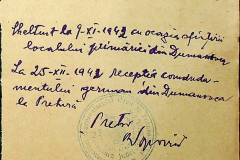 Cheltuit la 9-XI-1942 cu ocazia sfințirii
localului primăriei din Dumanovca
La 25-XII-1942 recepția comanda-
mentului german din Dumanovca
la Pretură
Pretor